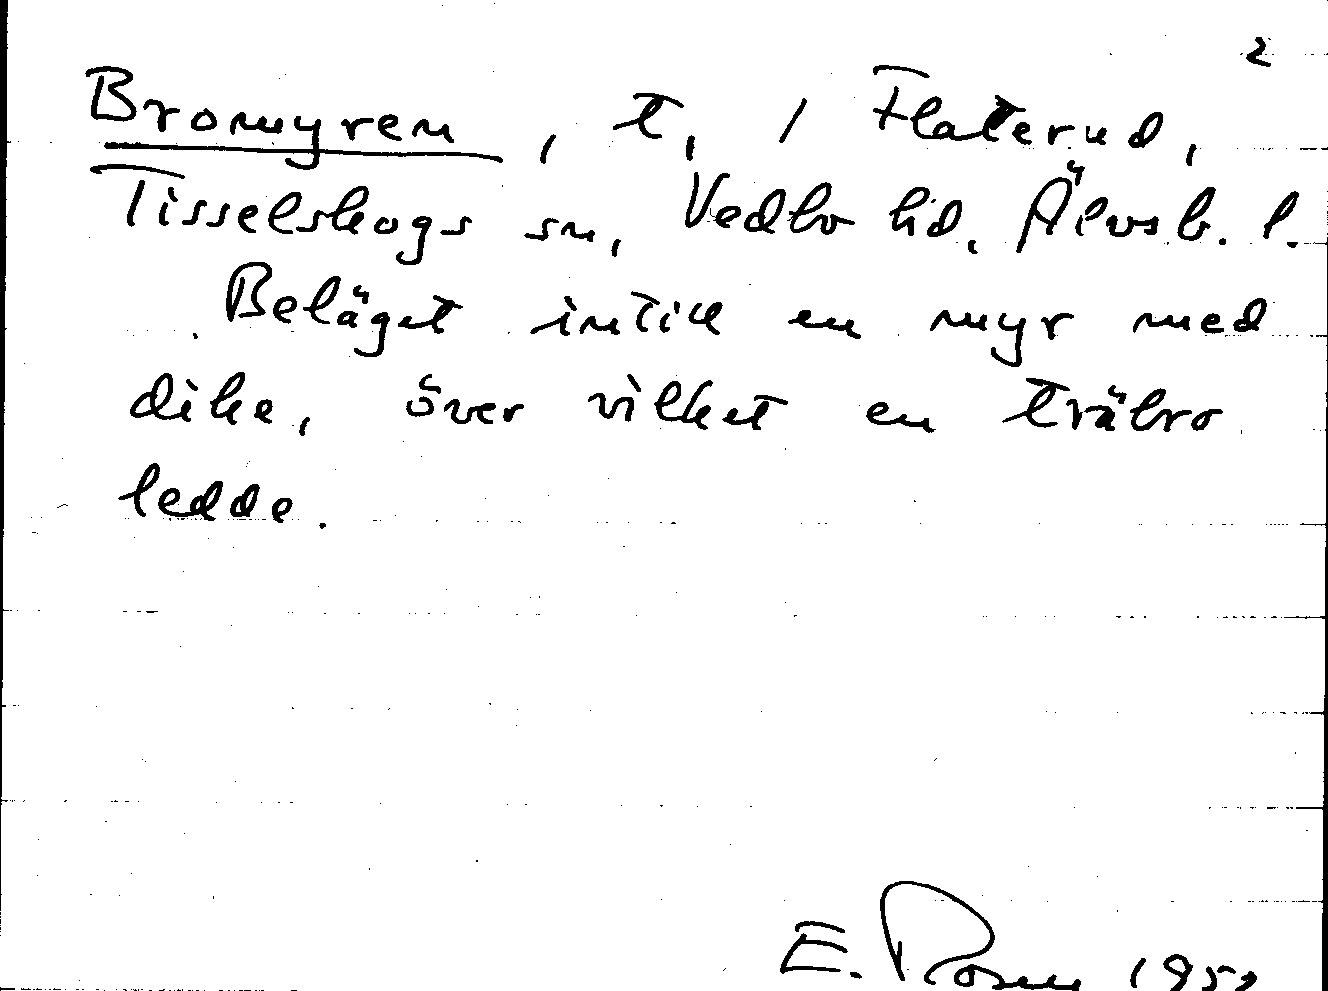 2
Bromyren, t, / Flaterud,
Tisselskogs sn, Vedbo hd. Älvsb. l.
Beläget intill en myr med
dike, över vilket en träbro
ledde.
E.